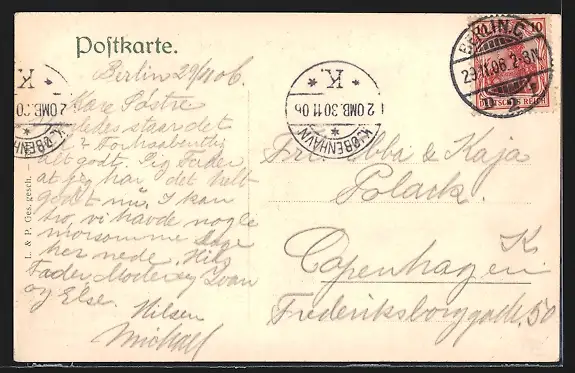 Postkarte.
Berlin 29/11 06.
Kære Søstre
staar det
alt godt. Sig Fader
at jeg har det helt
godt nu. I kan
tro, vi havde nogle
morsomme Dage
her nede. Hils
Fader, Moder og Ivan
og Else.
Hilsen
Michael
L. & P. Ges. gesch.
K.
2 OMB. 30 11 06
KJØBENHAVN
K.
2 OMB.
KJØBENHAVN
BERLIN. C.
29.11.06. 2-3N
2
10
DEUTSCHES REICH
Ebba & Kaja
Polack.
K
Copenhagen
Frederiksborggade 50